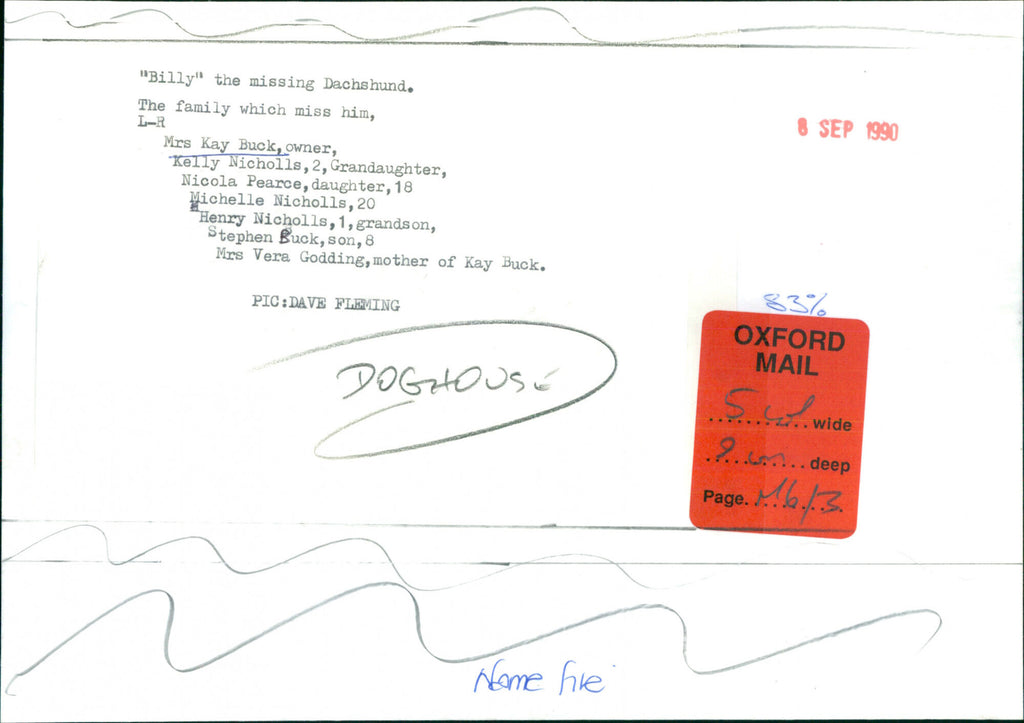 "Billy" the missing Dachshund.
The family which miss him,
L-R
Mrs Kay Buck,owner,
Kelly Nicholls,2,Grandaughter,
Nicola Pearce,daughter,18
Michelle Nicholls,20
Henry Nicholls,1,grandson,
Stephen Buck,son,8
Mrs Vera Godding,mother of Kay Buck.
PIC:DAVE FLEMING
DOGHOUSE
8 SEP 1990
83%
OXFORD
MAIL
5 col wide
9 cm deep
Page. M6/3
Name file